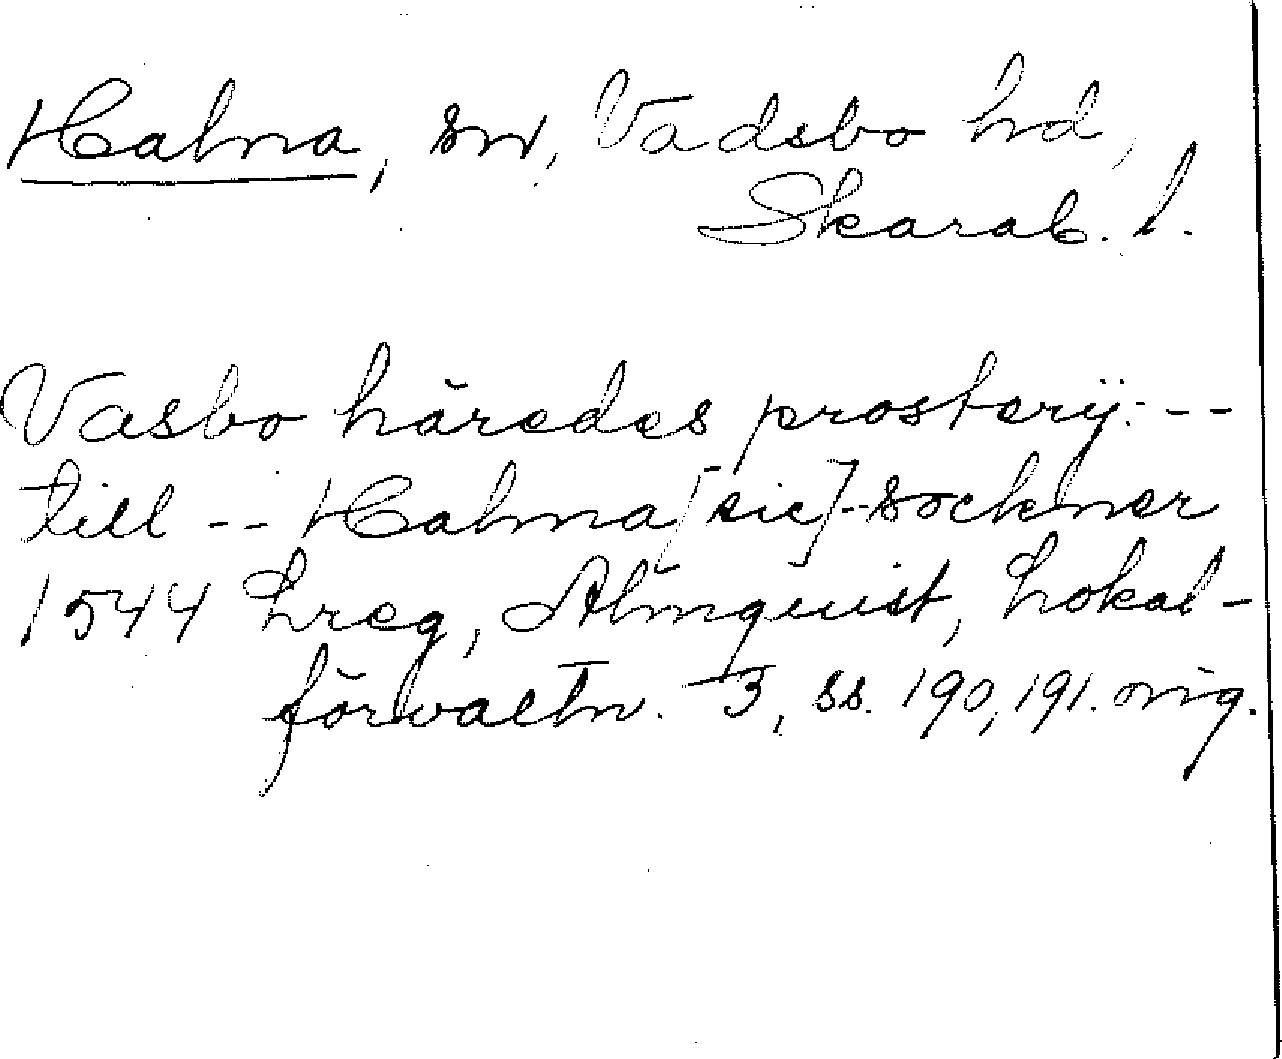 Halna, sn, Vadsbo hd,
Skarab. l.
Vasbo häredes prosterÿ: --
till -- Halma [sic] - sockner
1544 Lreg, Almquist, Lokal-
förvaltn. 3, ss. 190, 191. orig.